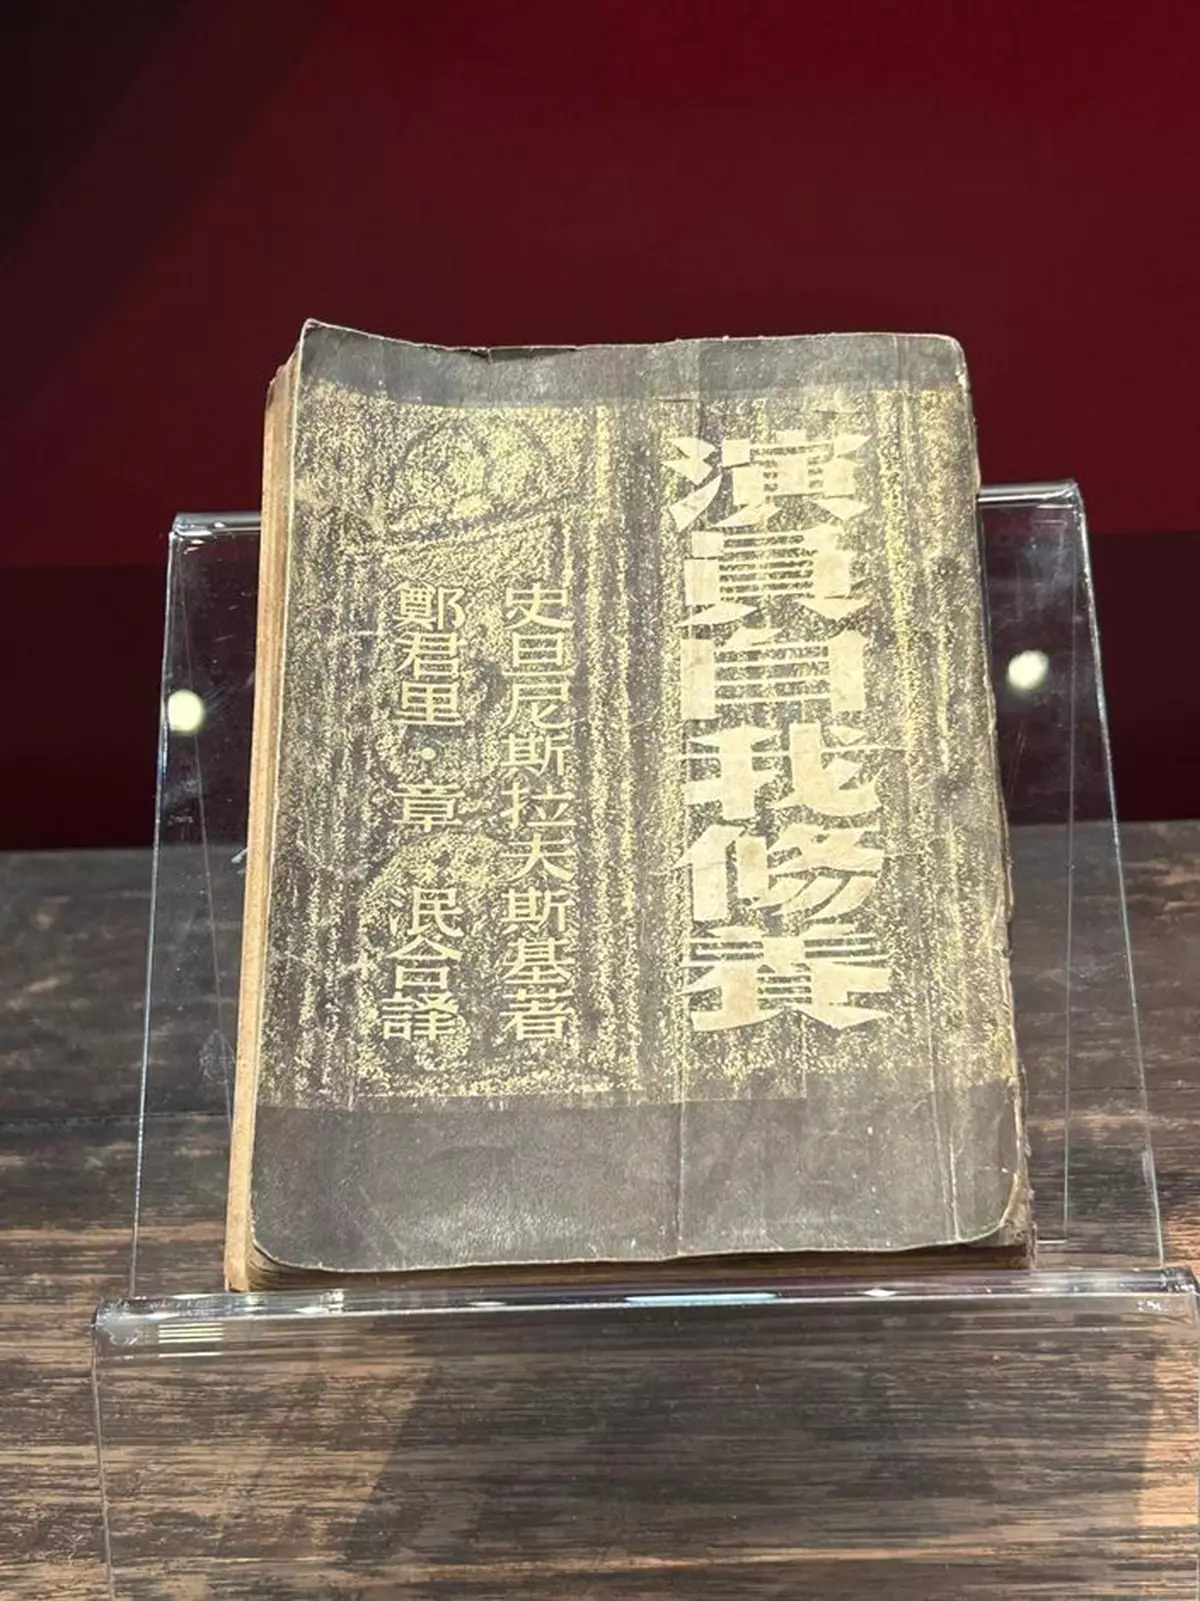 演員自我修養
史旦尼斯拉夫斯基著
鄭君里・章 泯合譯